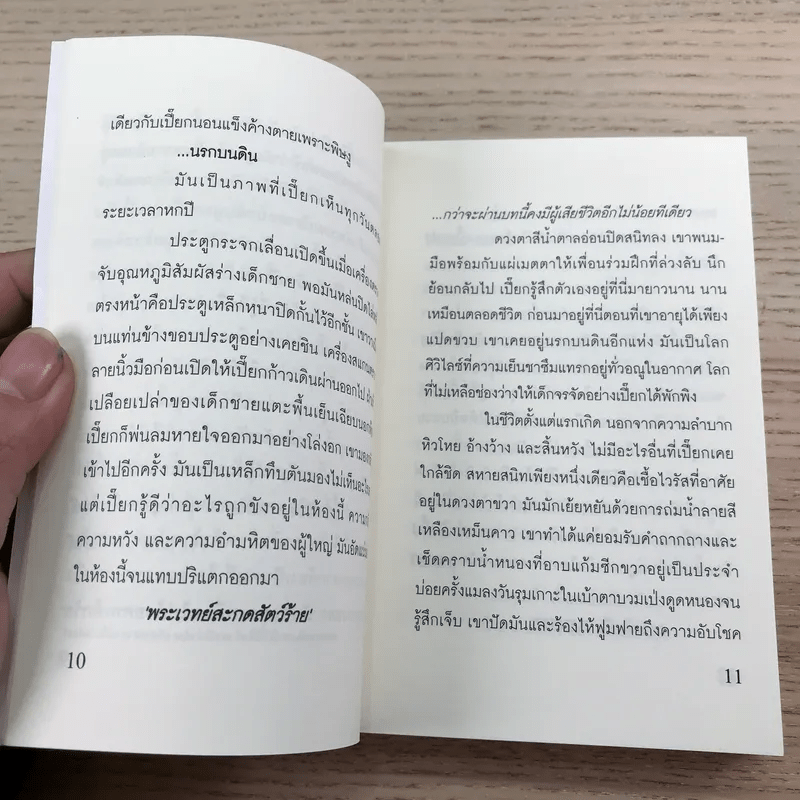 เดียวกับเปี๊ยกนอนแข็งค้างตายเพราะพิษงู
...นรกบนดิน
มันเป็นภาพที่เปี๊ยกเห็นทุกวัน
ระยะเวลาหกปี
ประตูกระจกเลื่อนเปิดขึ้นเมื่อ
จับอุณหภูมิสัมผัสร่างเด็กชาย พอมันหล่นปิด
ตรงหน้าคือประตูเหล็กหนาปิดกั้นไว้อีกชั้น
บนแท่นข้างขอบประตูอย่างเคยชิน
ลายนิ้วมือก่อนเปิดให้เปี๊ยกก้าวเดินผ่านออกไป
เปลือยเปล่าของเด็กชายแตะพื้นเย็นเฉียบ
เปี๊ยกก็พ่นลมหายใจออกมาอย่างโล่งอก
เข้าไปอีกครั้ง มันเป็นเหล็กทึบตันมองไม่เห็น
แต่เปี๊ยกรู้ดีว่าอะไรถูกขังอยู่ในห้องนี้
ความหวัง และความอำมหิตของผู้ใหญ่
ในห้องนี้จนแทบปริแตกออกมา
'พระเวทย์สะกดสัตว์ร้าย'
10
...กว่าจะผ่านบทนี้คงมีผู้เสียชีวิตอีกไม่น้อยทีเดียว
ดวงตาสีน้ำตาลอ่อนปิดสนิทลง เขาพนม-
มือพร้อมกับแผ่เมตตาให้เพื่อนร่วมฝึกที่ล่วงลับ นึก
ย้อนกลับไป เปี๊ยกรู้สึกตัวเองอยู่ที่นี่มายาวนาน นาน
เหมือนตลอดชีวิต ก่อนมาอยู่ที่นี่ตอนที่เขาอายุได้เพียง
แปดขวบ เขาเคยอยู่นรกบนดินอีกแห่ง มันเป็นโลก
ศิวิไลซ์ที่ความเย็นชาซึมแทรกอยู่ทั่วอณูในอากาศ โลก
ที่ไม่เหลือช่องว่างให้เด็กจรจัดอย่างเปี๊ยกได้พักพิง
ในชีวิตตั้งแต่แรกเกิด นอกจากความลำบาก
หิวโหย อ้างว้าง และสิ้นหวัง ไม่มีอะไรอื่นที่เปี๊ยกเคย
ใกล้ชิด สหายสนิทเพียงหนึ่งเดียวคือเชื้อไวรัสที่อาศัย
อยู่ในดวงตาขวา มันมักเย้ยหยันด้วยการถ่มน้ำลายสี
เหลืองเหม็นคาว เขาทำได้แค่ยอมรับคำถากถางและ
เช็ดคราบน้ำหนองที่อาบแก้มซีกขวาอยู่เป็นประจำ
บ่อยครั้งแมลงวันรุมเกาะในเบ้าตาบวมเป่งดูดหนองจน
รู้สึกเจ็บ เขาปัดมันและร้องไห้ฟูมฟายถึงความอับโชค
11